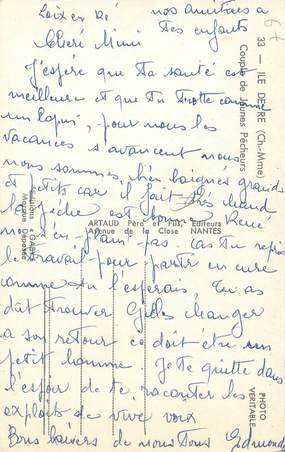 Loix en Ré
nos amitiés à
tes enfants
67
Chère Mimi
J'espère que ta santé est
meilleure et que tu trotte comme
un lapin, pour nous les
vacances s'avancent nous
nous sommes bien baignés grands
et petits car il fait très chaud
la pêche est bonne René
ne s'en plaint pas. As tu repris
le travail pour partir en cure
comme tu l'espérais, tu as
dût trouver Gilles changer
a son retour ce doit être un
petit homme. Je te quitte dans
l'espoir de te raconter les
exploits de vive voix
Bons baisers de nous tous Edmonde
33 — ILE DE RE (Ch.-Mme)
Couple de Jeunes Pêcheurs
Editions « GABY »
Marque Déposée
ARTAUD Père et Fils, Editeurs
Avenue de la Close NANTES
PHOTO
VERITABLE